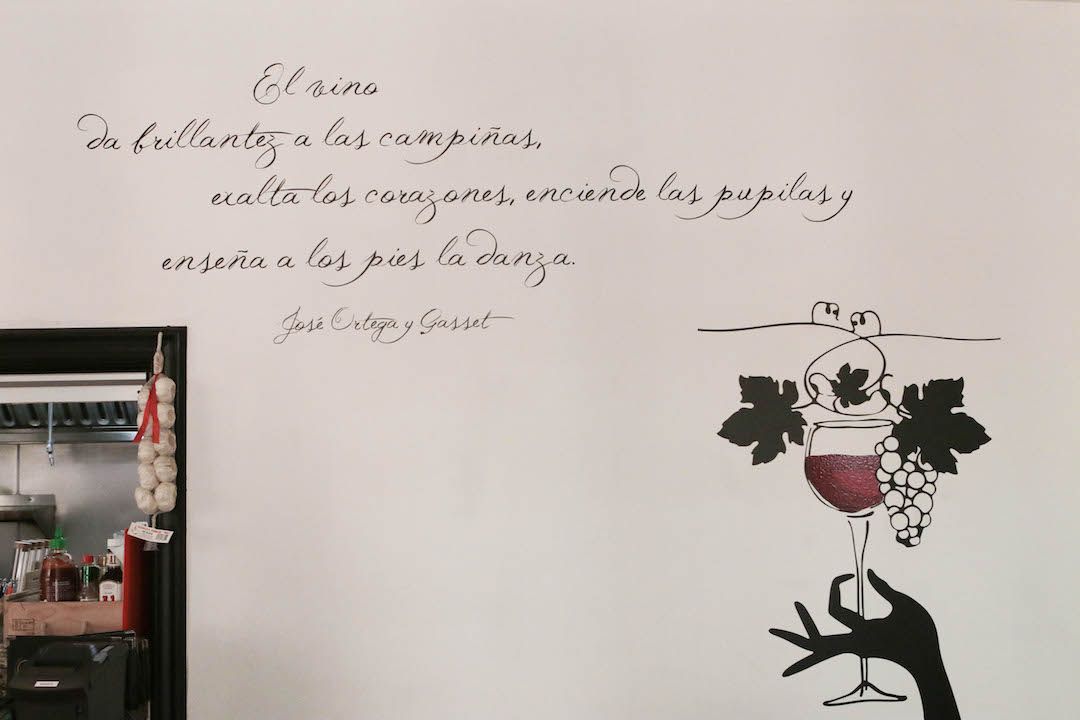 El vino
da brillantez a las campiñas,
exalta los corazones, enciende las pupilas y
enseña a los pies la danza.
José Ortega y Gasset